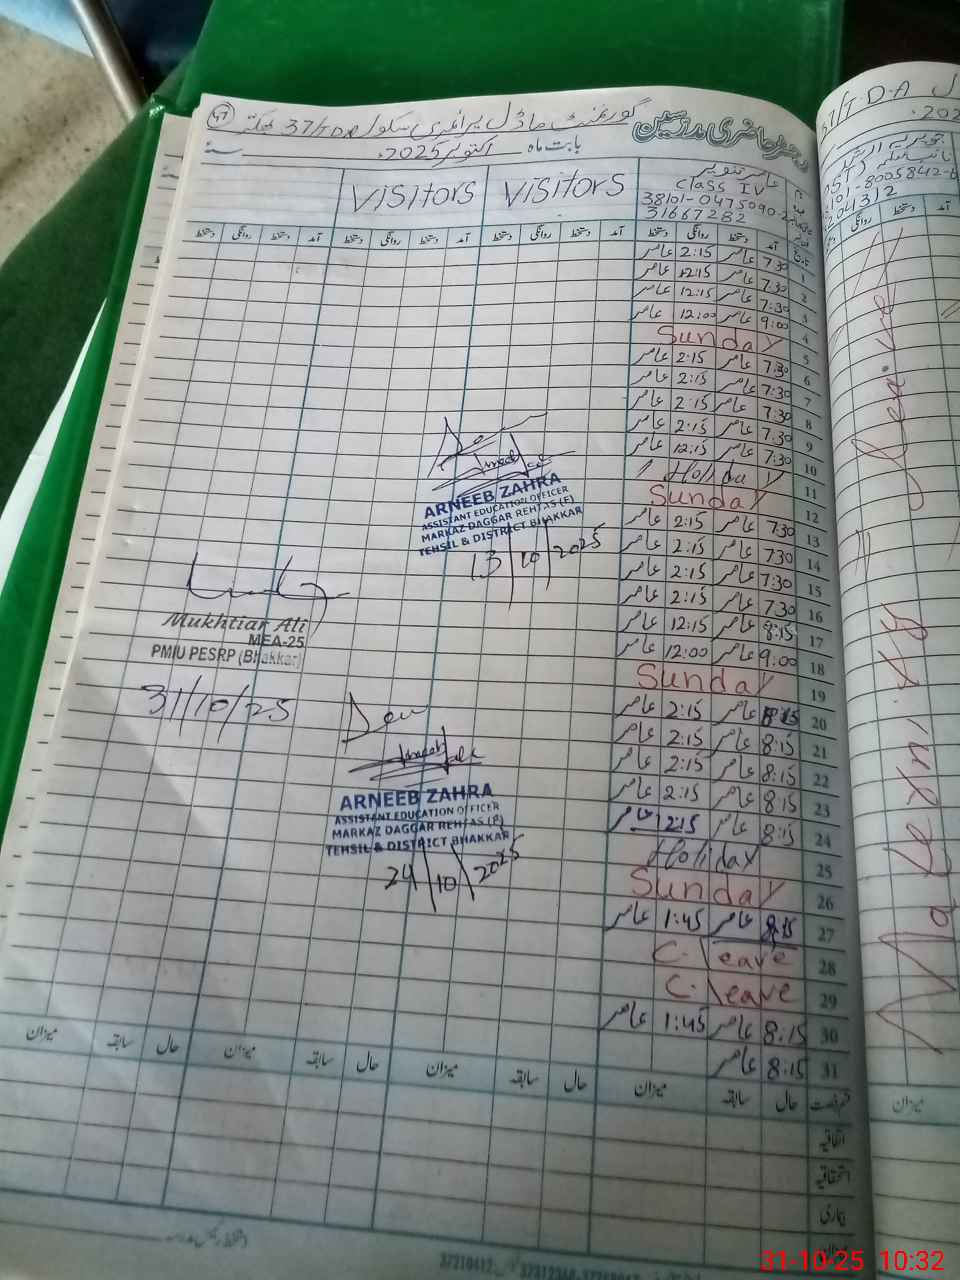 دفتر حاضری مدرسین گورنمنٹ ماڈل پرائمری سکول 37/TDA بھکر
47
بابت ماہ اکتوبر 2025ء سنہ
عامر
Class IV
38101-0475090-2
31667282
VISITORS VISITORS
تاریخ آمد دستخط روانگی دستخط آمد دستخط روانگی دستخط آمد دستخط روانگی دستخط آمد دستخط روانگی دستخط
1 7:30 عامر 2:15 عامر
2 7:30 عامر 12:15 عامر
3 7:30 عامر 12:15 عامر
4 9:00 عامر 12:00 عامر
5 Sunday
6 7:30 عامر 2:15 عامر
7 7:30 عامر 2:15 عامر
8 7:30 عامر 2:15 عامر
9 7:30 عامر 2:15 عامر
10 7:30 عامر 12:15 عامر
11 Holiday
12 Sunday
13 7:30 عامر 2:15 عامر
14 7:30 عامر 2:15 عامر
15 7:30 عامر 2:15 عامر
16 7:30 عامر 2:15 عامر
17 8:15 عامر 12:15 عامر
18 9:00 عامر 12:00 عامر
19 Sunday
20 8:15 عامر 2:15 عامر
21 8:15 عامر 2:15 عامر
22 8:15 عامر 2:15 عامر
23 8:15 عامر 2:15 عامر
24 8:15 عامر 12:15 عامر
25 Holiday
26 Sunday
27 8:15 عامر 1:45 عامر
28 C. leave
29 C. leave
30 8:15 عامر 1:45 عامر
31 8:15 عامر
ARNEEB ZAHRA
ASSISTANT EDUCATION OFFICER
MARKAZ DAGGAR REHTAS (F)
TEHSIL & DISTRICT BHAKKAR
13/10/2025
Mukhtiar Ali
MEA-25
PMIU PESRP (Bhakkar)
31/10/25
ARNEEB ZAHRA
ASSISTANT EDUCATION OFFICER
MARKAZ DAGGAR REHTAS (F)
TEHSIL & DISTRICT BHAKKAR
24/10/2025
قسم رخصت حال سابقہ میزان حال سابقہ میزان حال سابقہ میزان حال سابقہ میزان
اتفاقیہ
استحقاقیہ
بیماری
میزان
37/T.D.A
2025
8005842-6
Maternity Leave
میزان
31-10-25 10:32